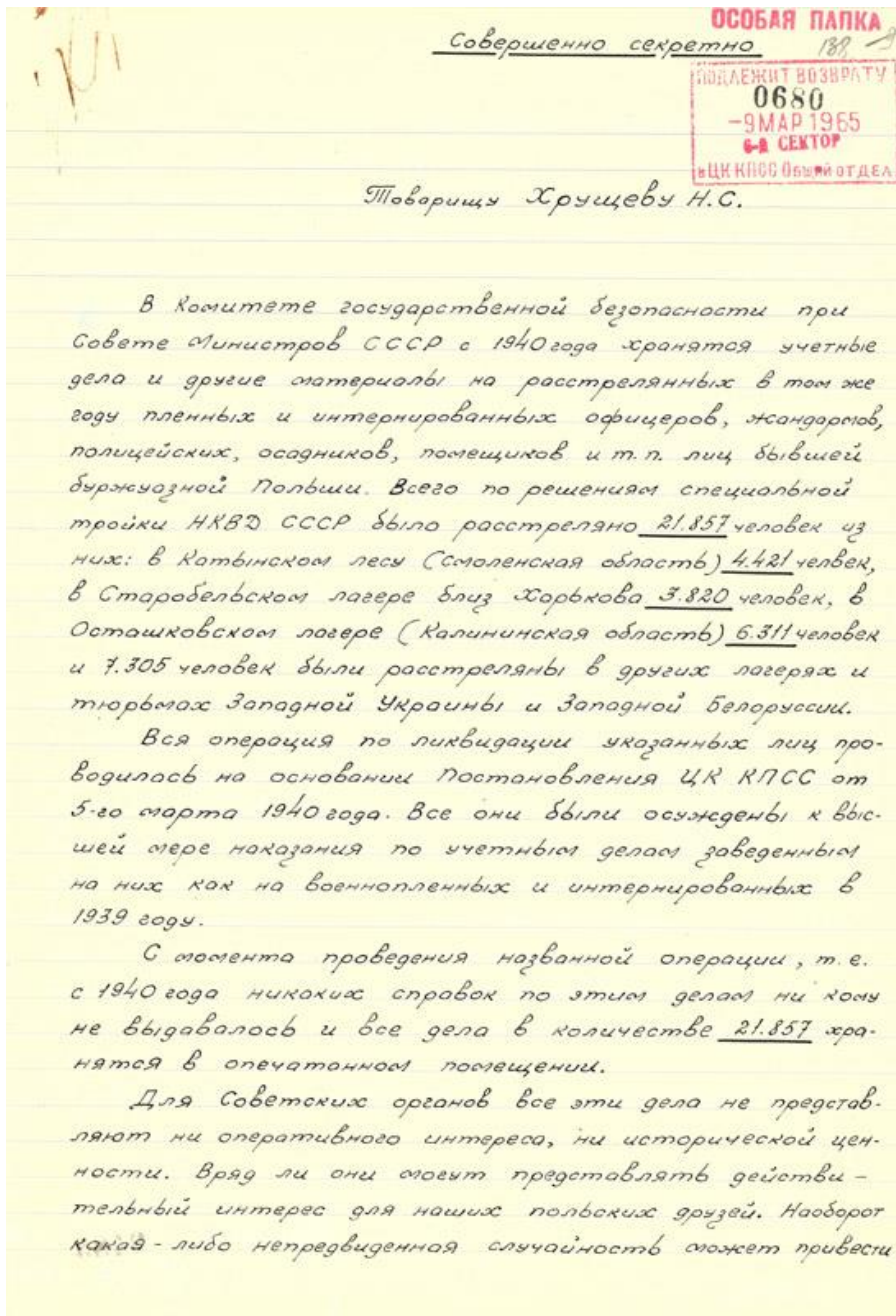 ОСОБАЯ ПАПКА
Совершенно секретно
ПОДЛЕЖИТ ВОЗВРАТУ
0680
-9 МАР 1965
6-й СЕКТОР
в ЦК КПСС Общий ОТДЕЛ
Товарищу Хрущеву Н.С.
В Комитете государственной безопасности при
Совете Министров СССР с 1940 года хранятся учетные
дела и другие материалы на расстрелянных в том же
году пленных и интернированных офицеров, жандармов,
полицейских, осадников, помещиков и т.п. лиц бывшей
буржуазной Польши. Всего по решениям специальной
тройки НКВД СССР было расстреляно 21.857 человек из
них: в Катынском лесу (Смоленская область) 4.421 челвек,
в Старобельском лагере близ Харькова 3.820 человек, в
Осташковском лагере (Калининская область) 6.311 человек
и 7.305 человек были расстреляны в других лагерях и
тюрьмах Западной Украины и Западной Белоруссии.
Вся операция по ликвидации указанных лиц про-
водилась на основании Постановления ЦК КПСС от
5-го марта 1940 года. Все они были осуждены к выс-
шей мере наказания по учетным делам заведенным
на них как на военнопленных и интернированных в
1939 году.
С момента проведения названной операции, т.е.
с 1940 года никаких справок по этим делам ни кому
не выдавалось и все дела в количестве 21.857 хра-
нятся в опечатанном помещении.
Для Советских органов все эти дела не представ-
ляют ни оперативного интереса, ни исторической цен-
ности. Вряд ли они могут представлять действи-
тельный интерес для наших польских друзей. Наоборот
какая-либо непредвиденная случайность может привести